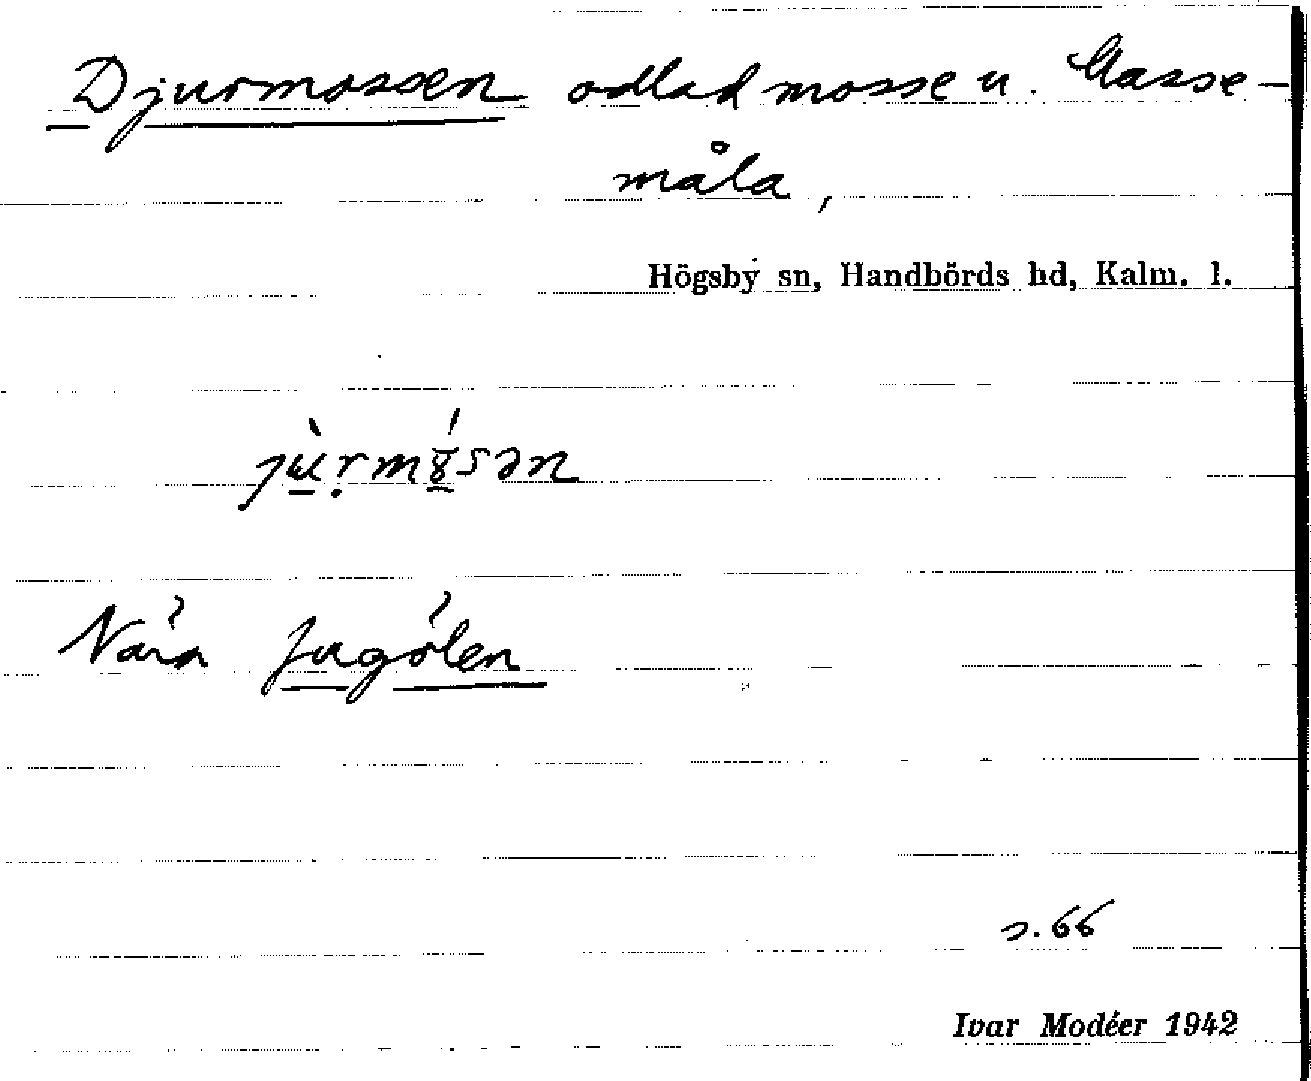 Djurmossen odlad mosse u. Klasse-
måla,
Högsby sn, Handbörds hd, Kalm. l.
Nära Jugölen
s. 66
Ivar Modéer 1942